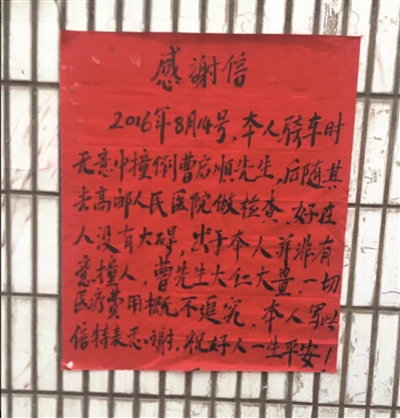 感謝信
2016年8月14号,本人骑车时
无意中撞倒曹后顺先生,后随其
去高邮人民医院做检查,好在
人没有大碍,出于本人并非有
意撞人,曹先生大仁大量,一切
医疗費用概不追究,本人写此
信特表感谢,祝好人一生平安!